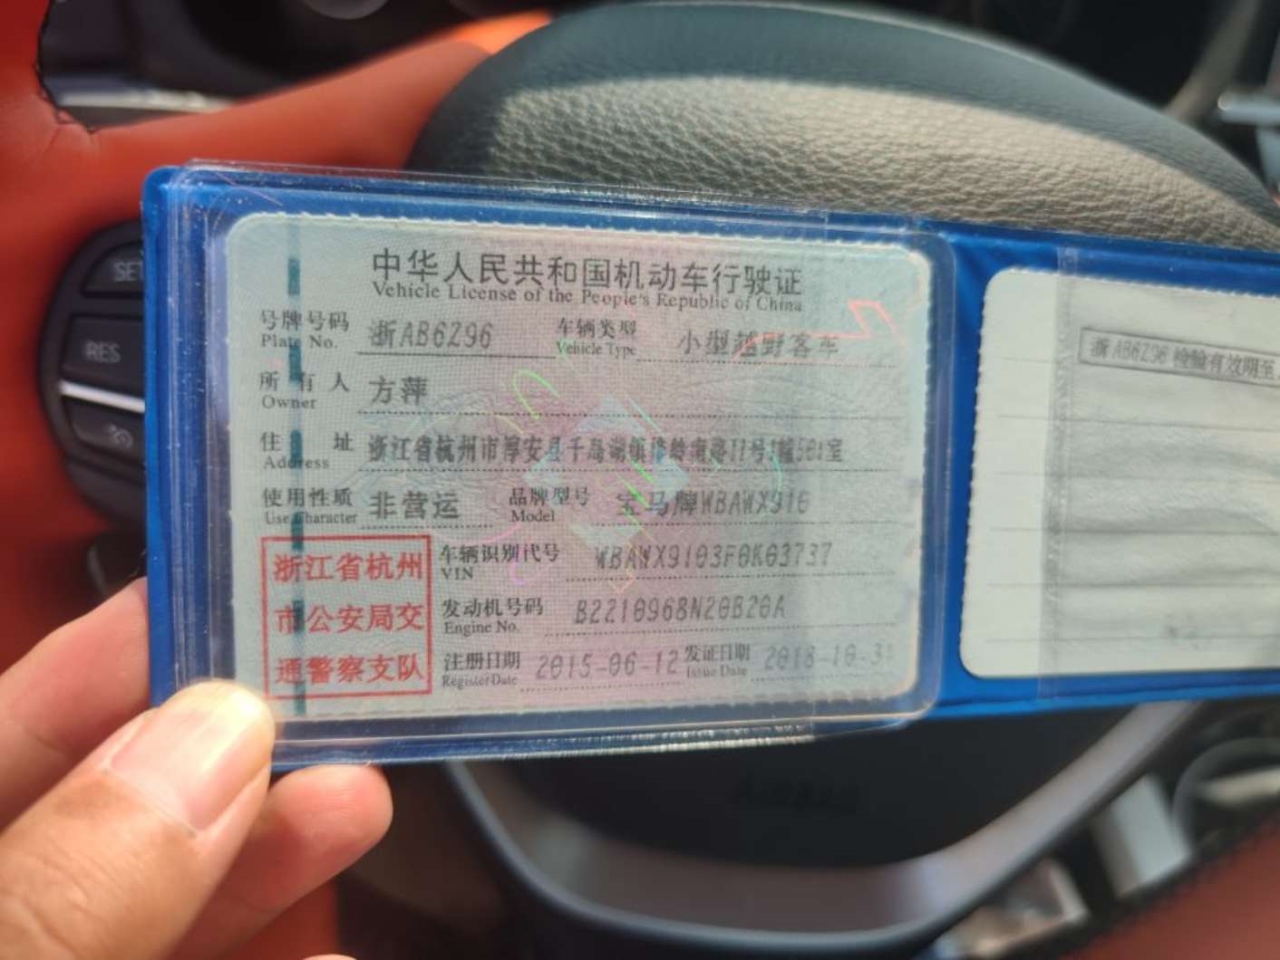 中华人民共和国机动车行驶证
Vehicle License of the People's Republic of China
号牌号码 浙AB6Z96 车辆类型 小型越野客车
Plate No. Vehicle Type
所有人 方萍
Owner
住址 浙江省杭州市淳安县千岛湖镇 南路11号1幢501室
Address
使用性质 非营运 品牌型号 宝马牌WBAWX910
Use Character Model
浙江省杭州
市公安局交
通警察支队
车辆识别代号 WBAWX9103F0K03737
VIN
发动机号码 B2210968N20B20A
Engine No.
注册日期 2015-06-12 发证日期 2018-10-31
Register Date Issue Date
浙AB6Z96 检验有效期至
SET
RES
AIRBAG